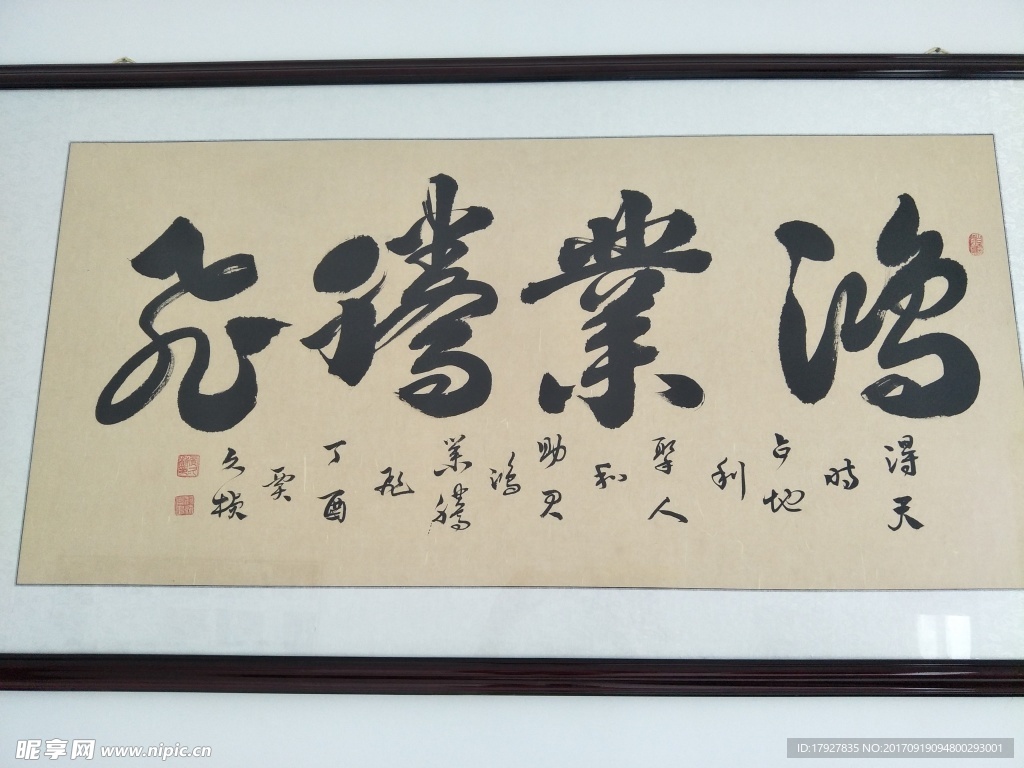 鴻業騰飛
得天
時
占地
利
聚人
和
助君
鴻
業騰
飛
丁酉
昵享网 www.nipic.cn
ID:17927835 NO:20170919094800293001